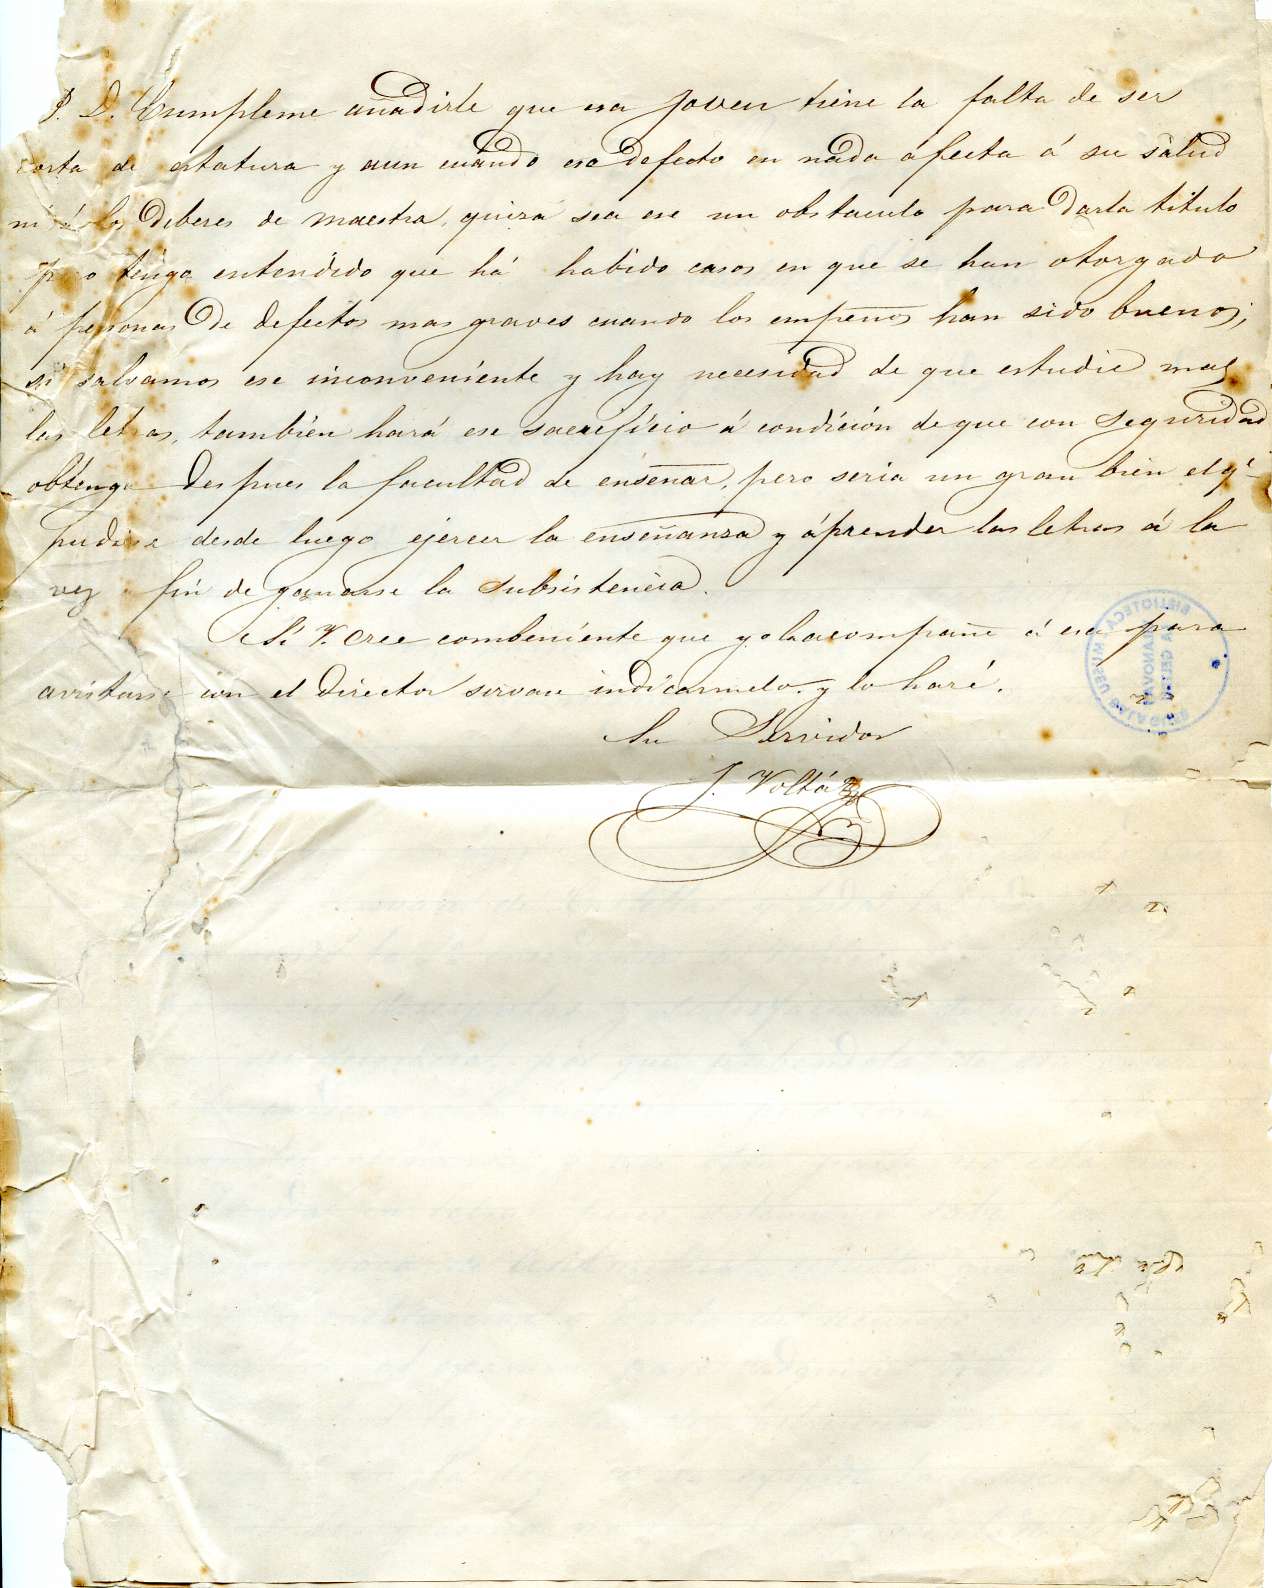 P. D. Cumpleme añadirle que esa joven tiene la falta de ser
corta de estatura y aun cuando ese defecto en nada áfecta á su salud
ni á los deberes de maestra, quizá sea ese un obstaculo para darla titulo
pero tengo entendido que há habido casos en que se han otorgado
á personas de defectos mas graves cuando los empeños han sido buenos;
si salvamos ese inconveniente y hay necesidad de que estudie mas
las letras, también hará ese sacrificio á condición de que con seguridad
obtenga despues la facultad de enseñar, pero seria un gran bien el q.e
pudiese desde luego ejercer la enseñanza y áprender las letras á la
vez fin de ganarse la subsistencia.
Si V. cree combeniente que yo la acompañe á esa para
avistarse con el Director sirvase indicarmelo y lo haré.
Su Servidor
J. Voltá
BIBLIOTECA MUSEU BALAGUER
VILANOVA Y GELTRÚ